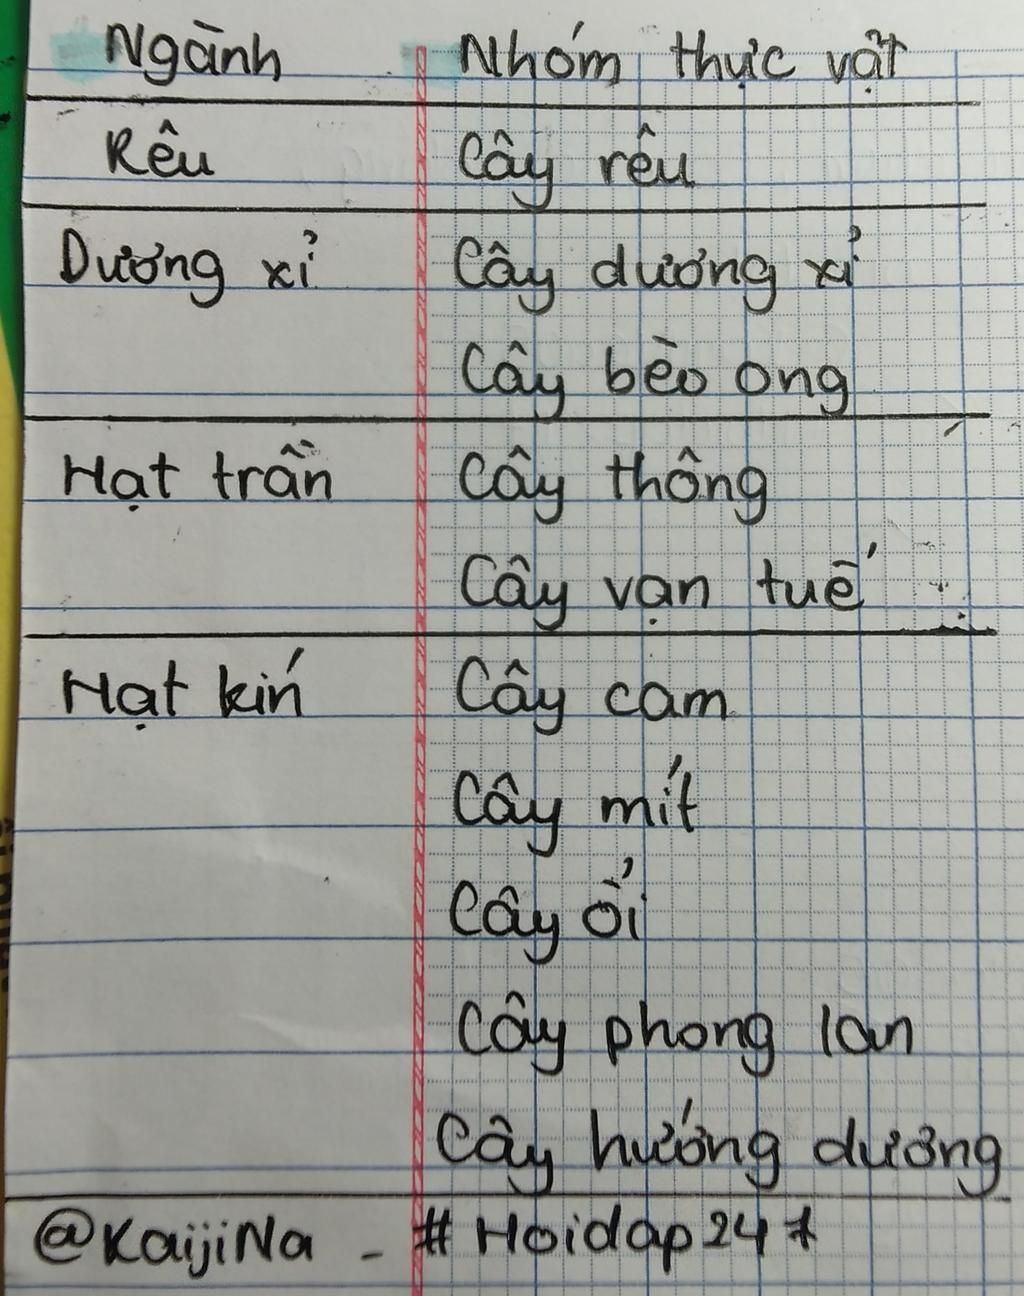 Ngành Nhóm thực vật
Rêu Cây rêu
Dương xỉ Cây dương xỉ
Cây bèo ong
Hạt trần Cây thông
Cây vạn tuế
Hạt kín Cây cam
Cây mít
Cây ổi
Cây phong lan
Cây hướng dương
@KaijiNa - #Hoidap247